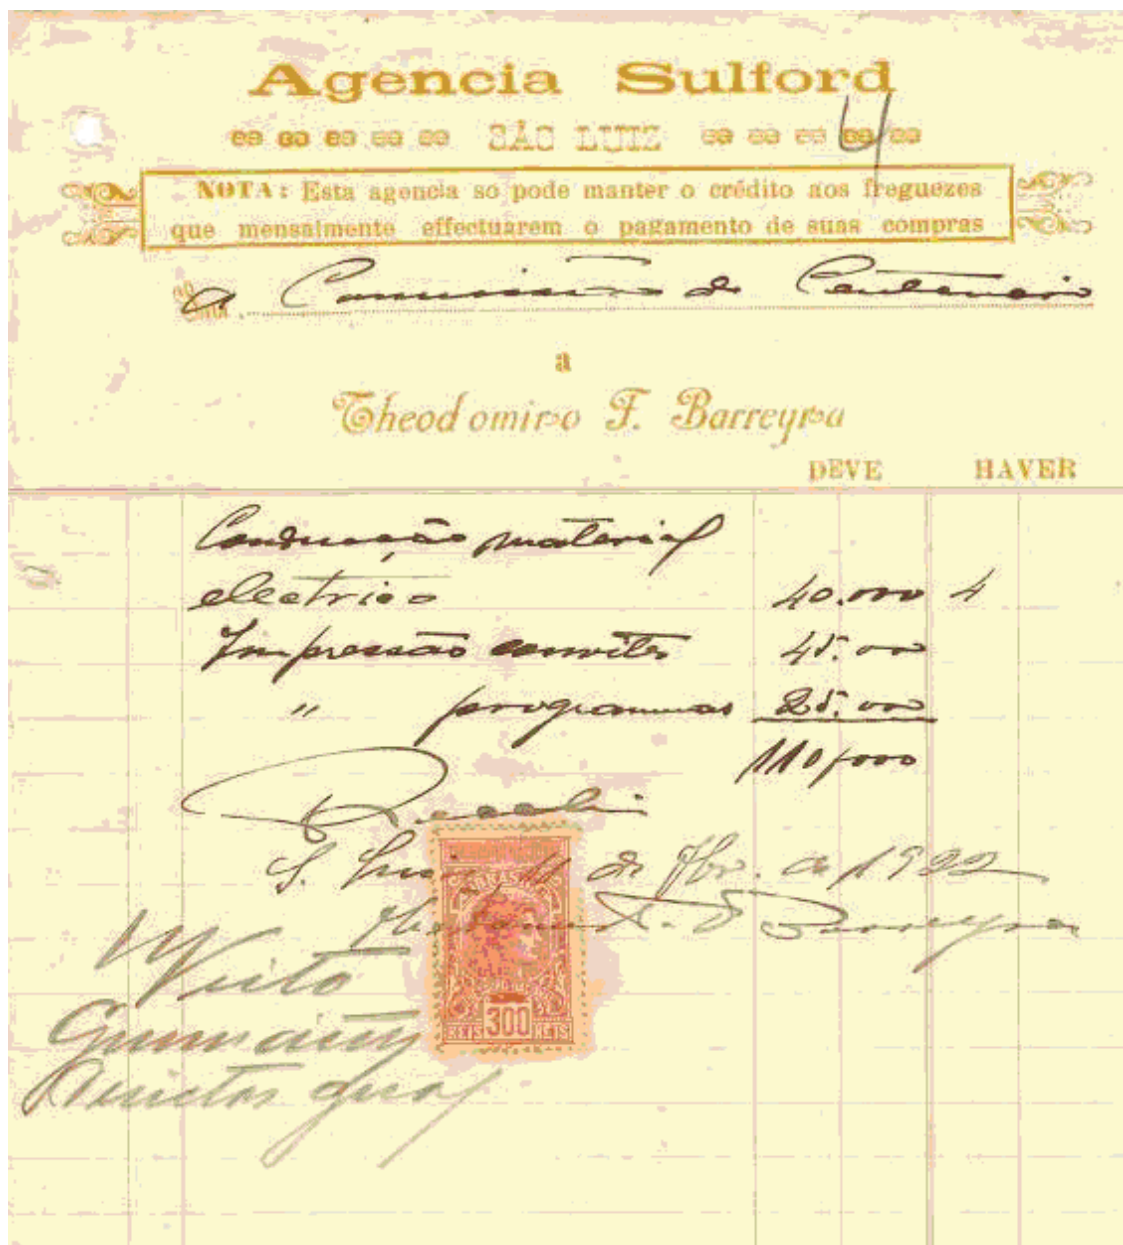 Agencia Sulford
4
SÃO LUIZ
NOTA: Esta agencia so pode manter o crédito aos freguezes
que mensalmente effectuarem o pagamento de suas compras
A Commissão do Centenario
a
Theodomiro F. Barreyra
DEVE HAVER
Conducção material
electrico 40.000 4
Impressão convites 45.000
" programmas 25.000
110,000
Recebi
S. Luiz 11 de 9br. de 1922
Theodomiro F. Barreyra
Visto
300
REIS REIS